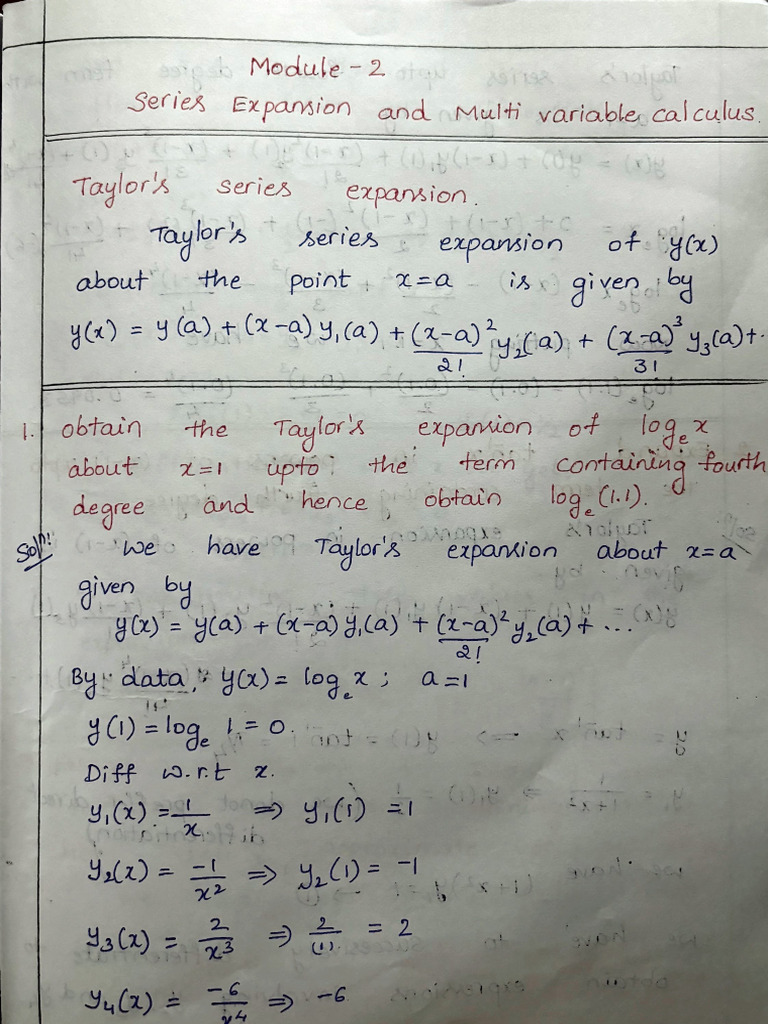 Module - 2
Series Expansion and Multi variable calculus.
Taylor's series expansion.
Taylor's series expansion of y(x)
about the point x=a is given by
y(x) = y(a) + (x-a) y₁(a) + (x-a)²/2! y₂(a) + (x-a)³/3! y₃(a)+..
1. obtain the Taylor's expansion of logₑx
about x=1 upto the term containing fourth
degree and hence obtain logₑ(1.1).
Soln: we have Taylor's expansion about x=a
given by
y(x) = y(a) + (x-a) y₁(a) + (x-a)²/2! y₂(a) + ...
By data, y(x) = logₑx ; a=1
y(1) = logₑ 1 = 0.
Diff w.r.t x.
y₁(x) = 1/x ⇒ y₁(1) = 1
y₂(x) = -1/x² ⇒ y₂(1) = -1
y₃(x) = 2/x³ ⇒ 2/(1) = 2
y₄(x) = -6/x⁴ ⇒ -6